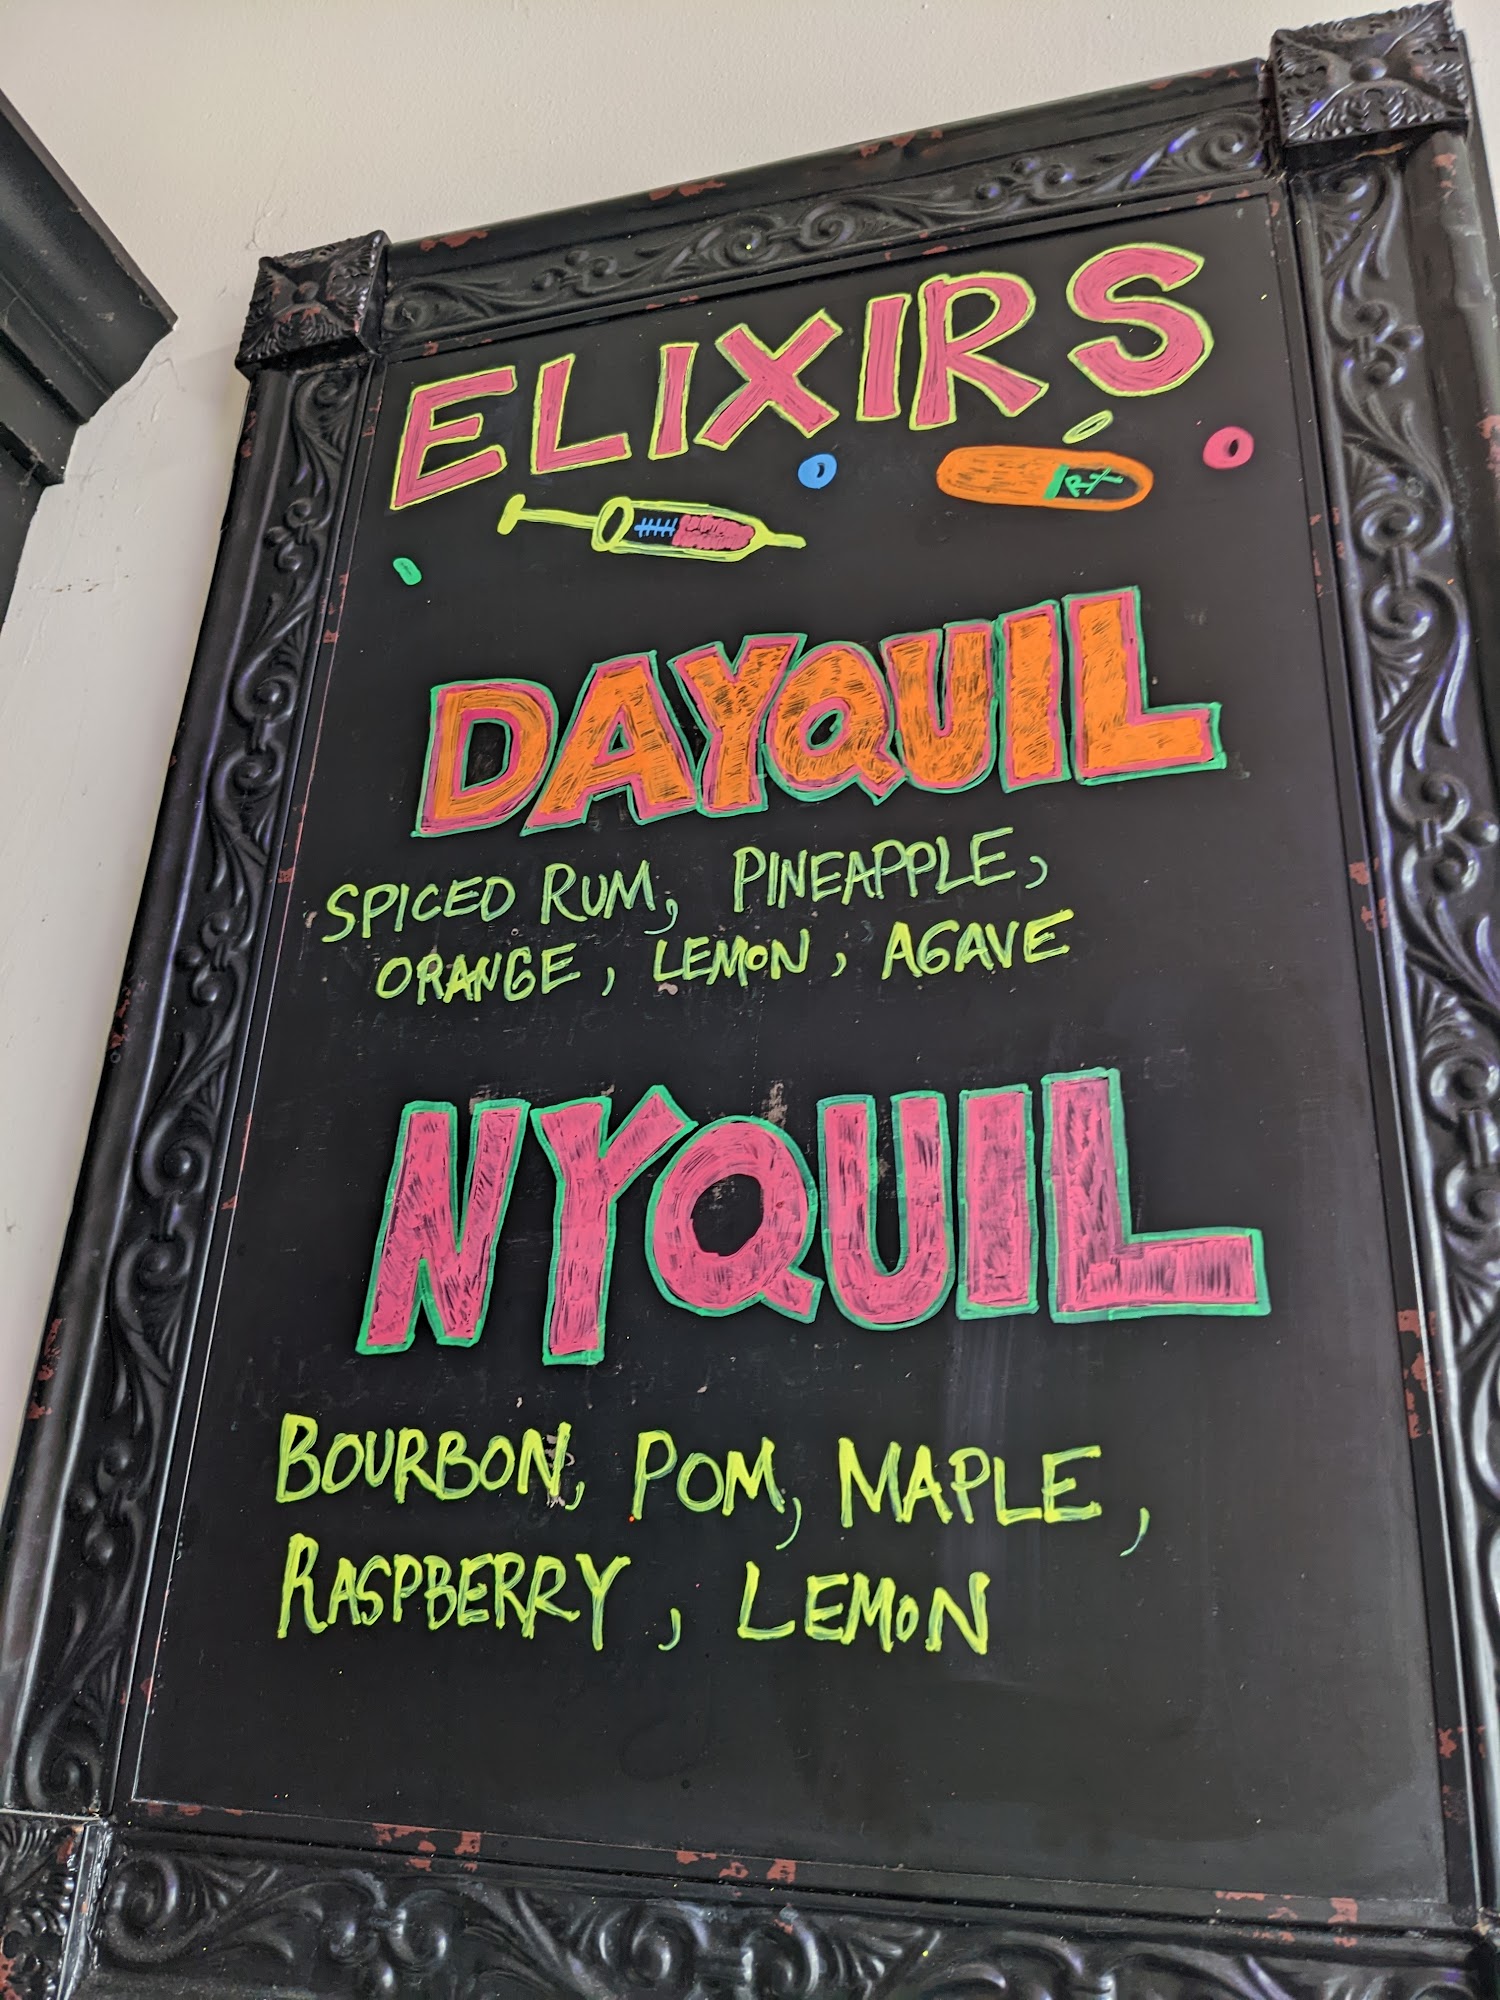 ELIXIRS
Rx
DAYQUIL
SPICED RUM, PINEAPPLE,
ORANGE, LEMON, AGAVE
NYQUIL
BOURBON, POM, MAPLE,
RASPBERRY, LEMON